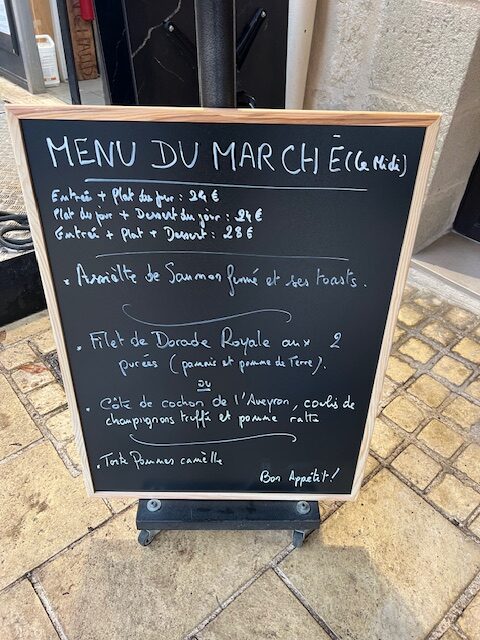 MENU DU MARCHÉ (Le Midi)
Entrée + Plat du jour : 24 €
Plat du jour + Dessert du jour : 24 €
Entrée + Plat + Dessert : 28 €
• Assiette de Saumon fumé et ses toasts.
• Filet de Dorade Royale aux 2
purées (panais et pomme de Terre).
ou
• Côte de cochon de l'Aveyron, coulis de
champignons truffé et pomme ratte
• Tarte Pommes cannelle
Bon Appétit !